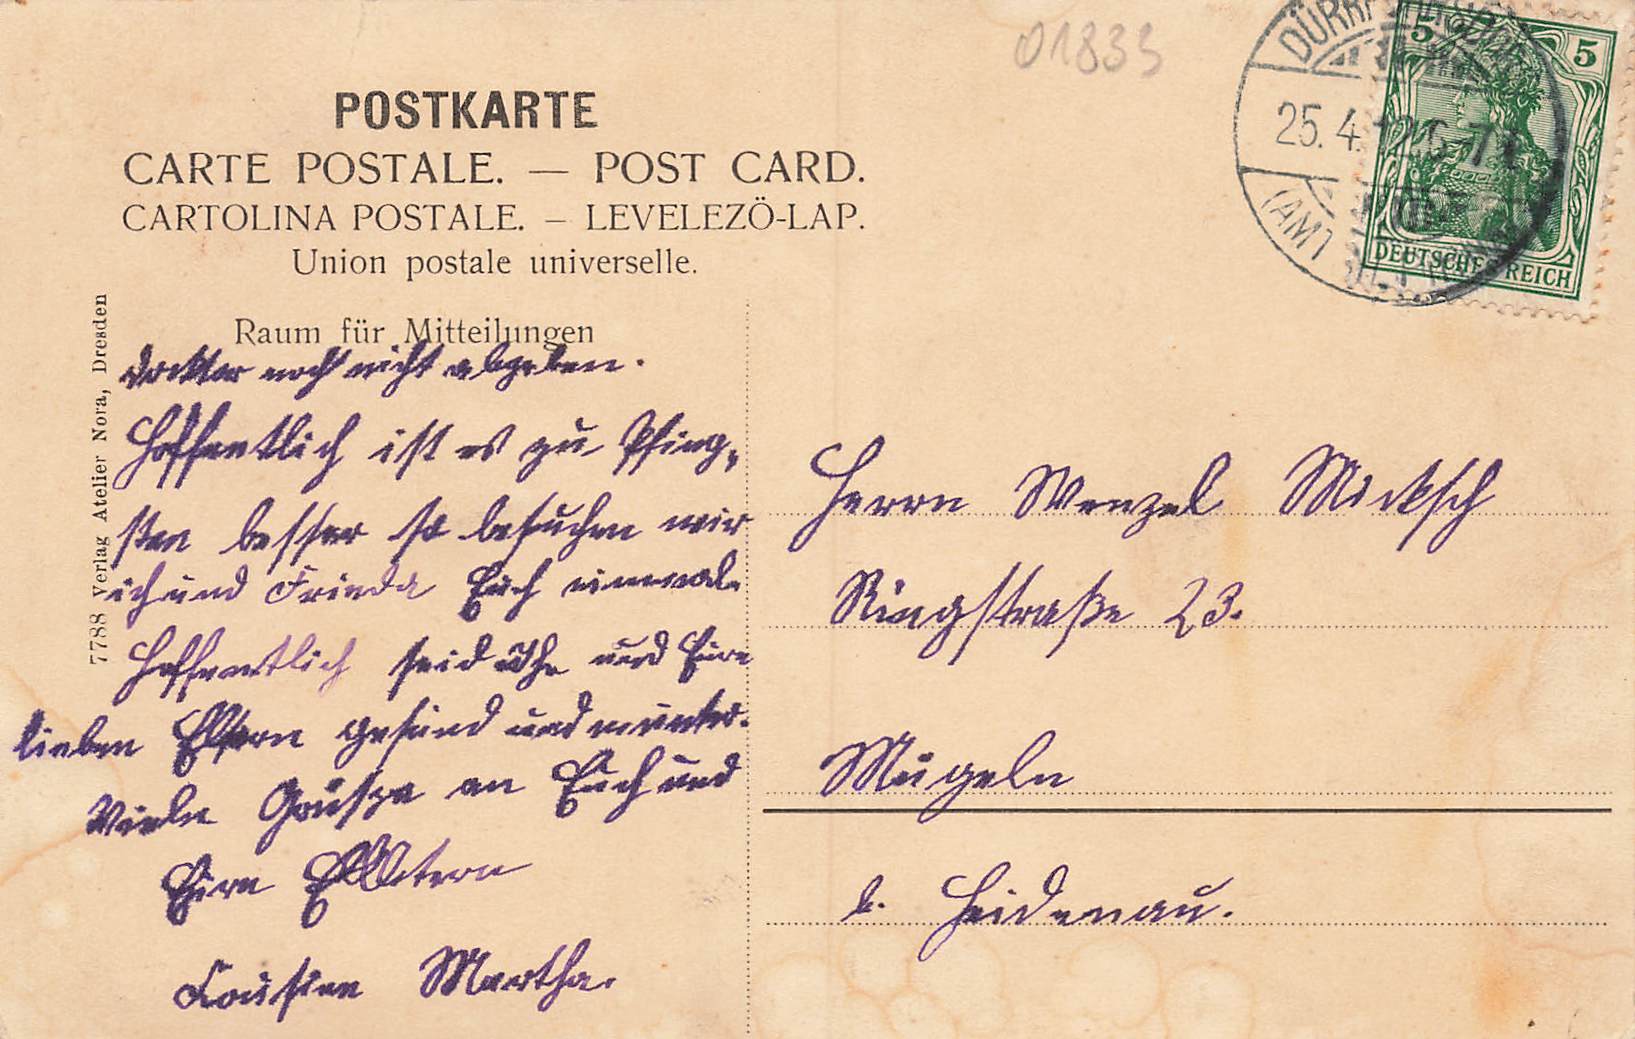 01833
POSTKARTE
CARTE POSTALE. — POST CARD.
CARTOLINA POSTALE. – LEVELEZÖ-LAP.
Union postale universelle.
Raum für Mitteilungen
7788 Verlag Atelier Nora, Dresden
5 5
DEUTSCHES REICH
25.4.12. 6-7
(AMT
Docktor noch nicht abgeben.
Hoffentlich ist es zu Pfing-
sten besser so besuchen wir
ich und Frieda Euch einmal.
Hoffentlich seid und Eure
lieben Eltern gesund und munter.
Viele Grüsse an Euch und
Eure Elltern
Cousine Martha.
Herrn Wenzel Micksch
Ringstraße 23.
Mügeln
b. Heidenau.